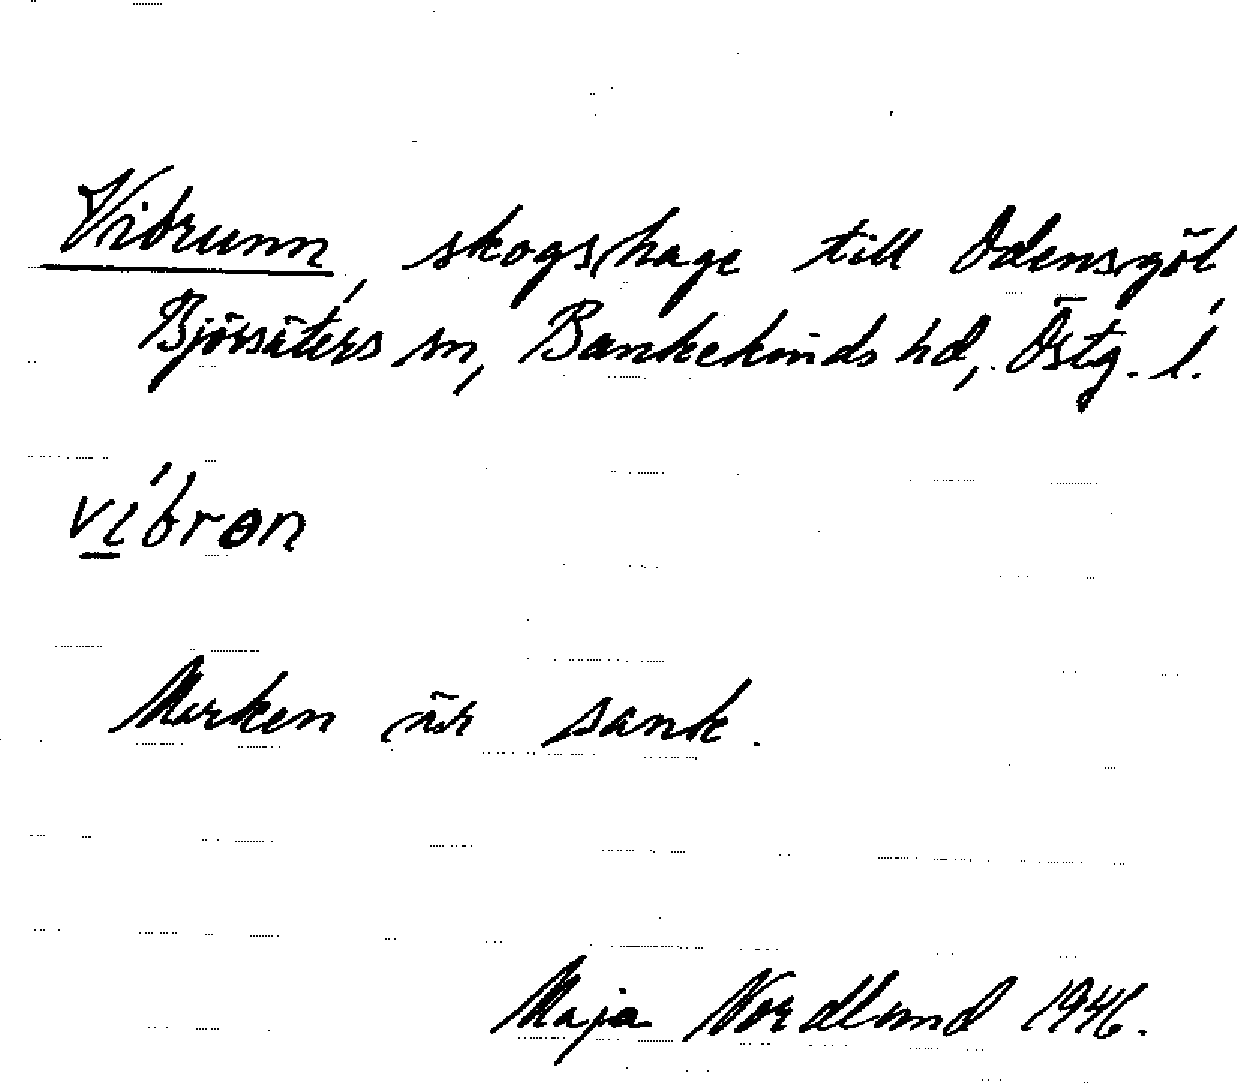 Vibrunn, skogshage till Odensgöl,
Björsäters sn, Bankekinds hd, Östg. l.
víbron
Marken är sank.
Maja Nordlund 1946.